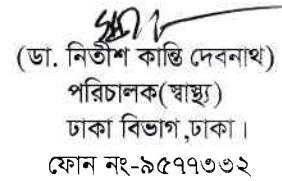 (ডা. নিতীশ কান্তি দেবনাথ)
পরিচালক(স্বাস্থ্য)
ঢাকা বিভাগ,ঢাকা।
ফোন নং-৯৫৭৭৩৩২